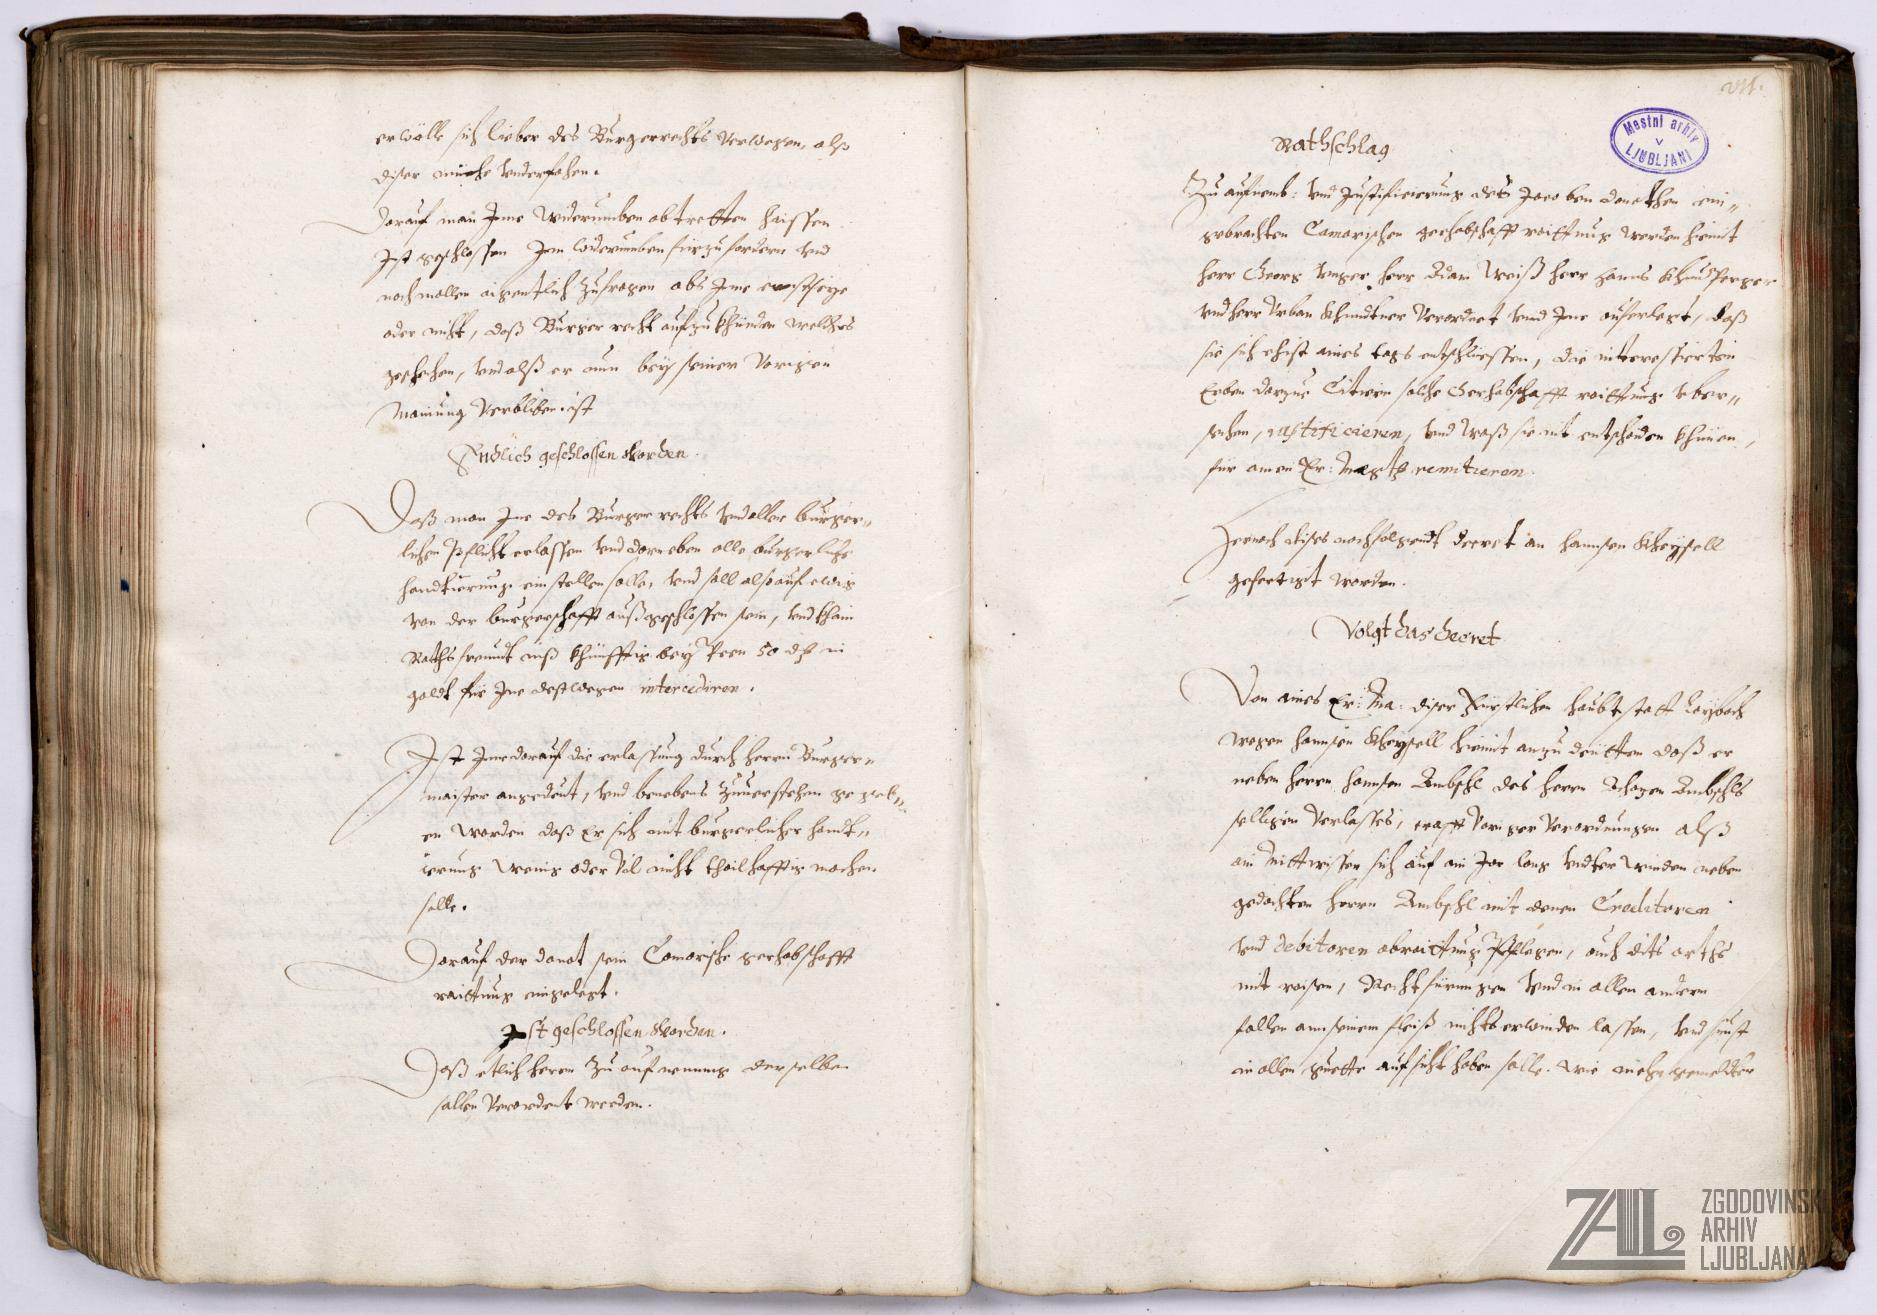 er wölle sich lieber des Burgerrechts verwegen, alß
diser mühe vnderfahen.
Darauf man Jme widerumben abtretten haissen.
Ist geschlossen Jem widerumben fürzufordern vnd
nochmallen aigentlich zufragen obs Jme ernst seye
oder nicht, daß Burgerrecht aufzukhünden welches
geschehen, vnd alß er nun bey seiner vorigen
Mainung verbliben ist
Endlich geschlossen worden.
Daß man Jne des Burgerrechts vnd aller burger„
lichen Pflicht erlassen vnd darneben alle burgerliche
handtierung einstellen solle, vnd soll also auf ewig
von der burgerschafft außgeschlossen sein, vnd khain
Rathsfreundt miß khünfftig bey Peen 50 in
goldt für Jne destwegen intercediren.
Ist Jme darauf die erlassung durch herrn Burger„
maister angedeut, vnd benebens zuuerstehen gegeb„
en worden daß Er sich mit burgerlicher handt„
ierung wenig oder vil nicht thailhafftig machen
solle.
Darauf der Donat sein Camorische gerhabschafft
raittung eingelegt.
Ist geschlossen worden.
Daß etlich herrn zu aufnemung derselben
sollen verordent werden.
Rathschlag
Zu aufnemb: vnd Justificierung des Jacoben Donathen ein„
gebrachten Camorischen gerhabschafft raittung werden hiemit
herr Georg Unger herr Adam Weiß herr Hanns
vnd herr Urban Khundtner verordnet vnd Jne auferlegt, daß
sie sich ehist aines tags entschliessen, die interessierten
Erben darzue Citiern solche Gerhabschafft raittung vber„
sehen, iustificieren, vnd waß sie nit entschaiden khünen,
für ainen Er: Magth remitieren.
Hernach dises nachfolgendt decret an Hannsen Kheysell
gefertigt worden.
Volgt das decret
Von aines Er: Ma: diser Fürstlichen haubtstatt Laybach
wegen Hannsen Kheysell hiemit anzudeütten daß er
neben herrn Hannsen Ambschl des herrn Ambschls
selligen verlasses, crafft voriger verordnungen alß
ain mitwisser sich auf ain Jar lang vndterwinden neben
gedachten herrn Ambschl mit denen Creditoren
vnd debitoren abraittung Pflegen, auch dits orths
mit raisen, Rechtfürungen vnd in allen andern
fallen an seinem fleiß nichts erwinden lassen, vnd sunst
in allem guette aufsicht haben solle. wie mehr gemelter
Mestni arhiv
v
LJUBLJANI
ZAL
ZGODOVINSKI
ARHIV
LJUBLJANA